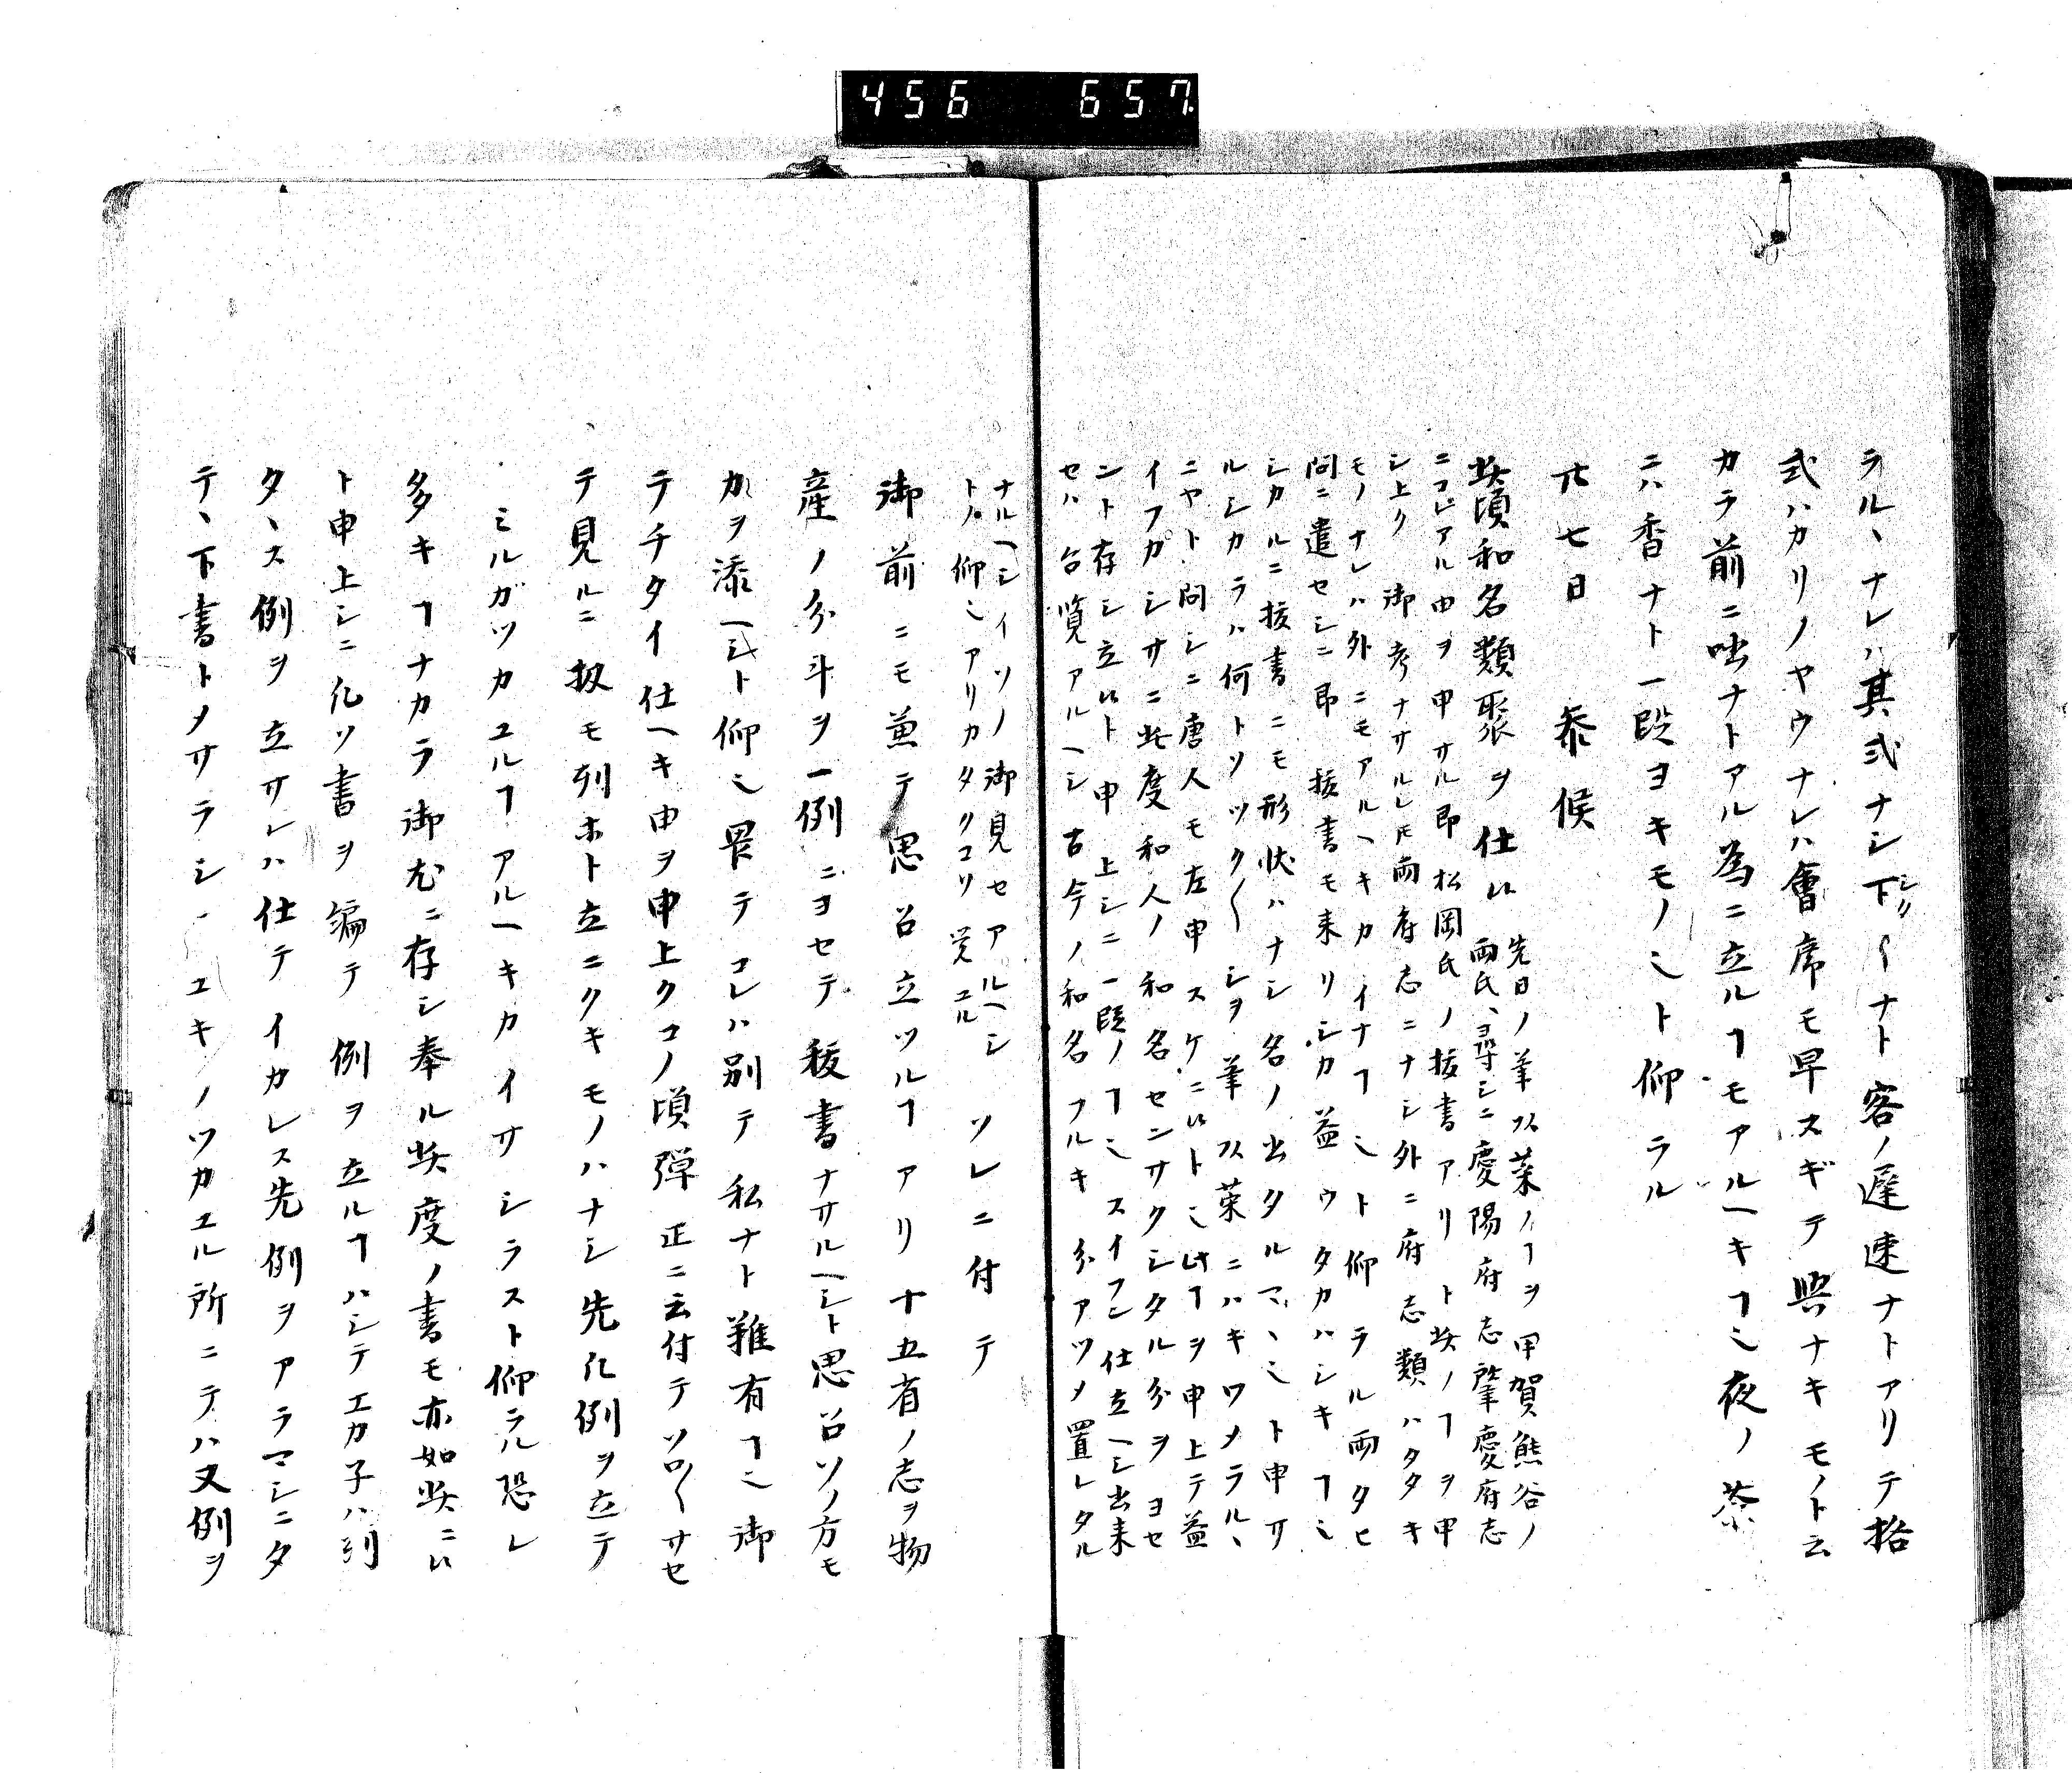 456 657
ラルヽナレハ其弐ナシ下〳〵ナト客ノ遅速ナトアリテ拾
弐ハカリノヤウナレハ會席モ早スギテ興ナキモノト云
カラ前ニ咄ナトアル為ニ立ルヿモアルヘキヿ也夜ノ茶
ニハ香ナト一段ヨキモノ也ト仰ラル
廿七日 参候
此頃和名類聚ヲ仕候
先日ノ
ノヿヲ甲賀熊谷ノ
両氏ヘ尋シニ慶陽府志肇慶府志
ニコレアル由ヲ申サル即松岡氏ノ抜書アリト此ノヿヲ申
シ上ク御考ナサルレ𪜈両府志ニナシ外ニ府志類ハタタキ
モノナレハ外ニモアルヘキカイナヿ也ト仰ラル両タヒ
問ニ遣セシニ即抜書モ来リシカ益ウタカハシキヿ也
シカルニ抜書ニモ形状ハナシ名ノ出タルマヽ也ト申サ
ルシカラハ何トソツク〳〵シヲ筆
ニハキワメラルヽ
ニヤト問シニ唐人モ左申スケニ候ト也此ヿヲ申上テ益
イフカシサニ此度和人ノ和名センサクシタル分ヲヨセ
ント存シ立候ト申上シニ一段ノヿ也スイフン仕立ヘシ出来
セハ台覧アルヘシ古今ノ和名フルキ分アツメ置レタル
ナルヘシイソノ御見セアルヘシ
トノ仰也アリカタクコソ覚ユル
ソレニ付テ
御前ニモ兼テ思召立ツルヿアリ十五省ノ志ヲ物
産ノ分斗ヲ一例ニヨセテ抜書ナサルヘシト思召ソノ方モ
力ヲ添ヘシト仰也畏テコレハ別テ私ナト難有ヿ也御
テチタイ仕ヘキ由ヲ申上クコノ頃弾正ニ云付テソロ〳〵サセ
テ見ルニ扨モ列ホト立ニクキモノハナシ先凡例ヲ立テ
ミルガツカユルヿアルヘキカイサシラスト仰ラル恐レ
多キヿナカラ御尤ニ存シ奉ル此度ノ書モ亦如此ニ候
ト申上シニ凡ソ書ヲ編テ例ヲ立ルヿハシテエカ子ハ列
タヽス例ヲ立サレハ仕テイカレス先例ヲアラマシニタ
テヽ下書トメサラシヽユキノツカエル所ニテハ又例ヲ